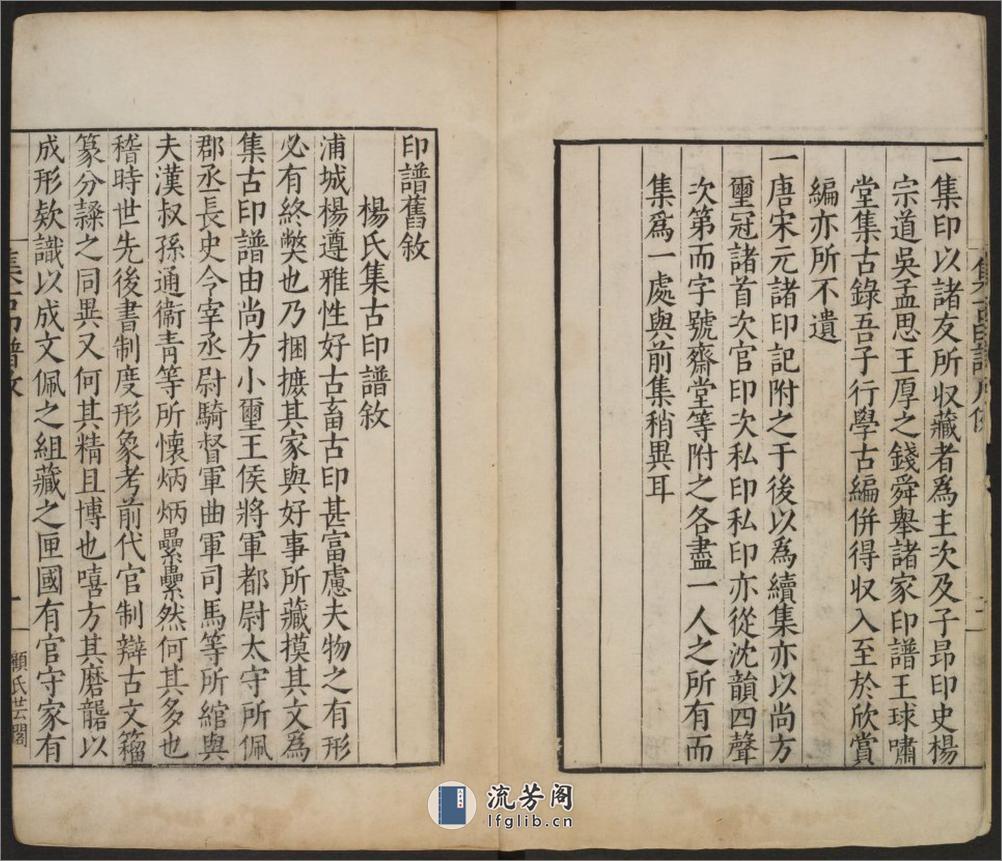 一集印以諸友所收藏者爲主次及子昻印史楊
宗道吳孟思王厚之錢舜舉諸家印譜王球嘯
堂集古錄吾子行學古編併得収入至於欣賞
編亦所不遺
一唐宋元諸印記附之于後以爲續集亦以尚方
璽冠諸首次官印次私印私印亦從沈韻四聲
次第而字號齋堂等附之各盡一人之所有而
集爲一處與前集稍異耳
印譜舊敘
楊氏集古印譜敘
浦城楊遵雅性好古畜古印甚富慮夫物之有形
必有終弊也乃捆摭其家與好事所藏摸其文爲
集古印譜由尚方小璽王侯將軍都尉太守所佩
郡丞長史令宰丞尉騎督軍曲軍司馬等所綰與
夫漢叔孫通衞青等所懷炳炳纍纍然何其多也
稽時世先後書制度形象考前代官制辯古文籀
篆分隸之同異又何其精且博也嘻方其磨礲以
成形欵識以成文佩之組藏之匣國有官守家有
集古印譜敘
一
顧氏芸閣
流芳阁
lfglib.cn